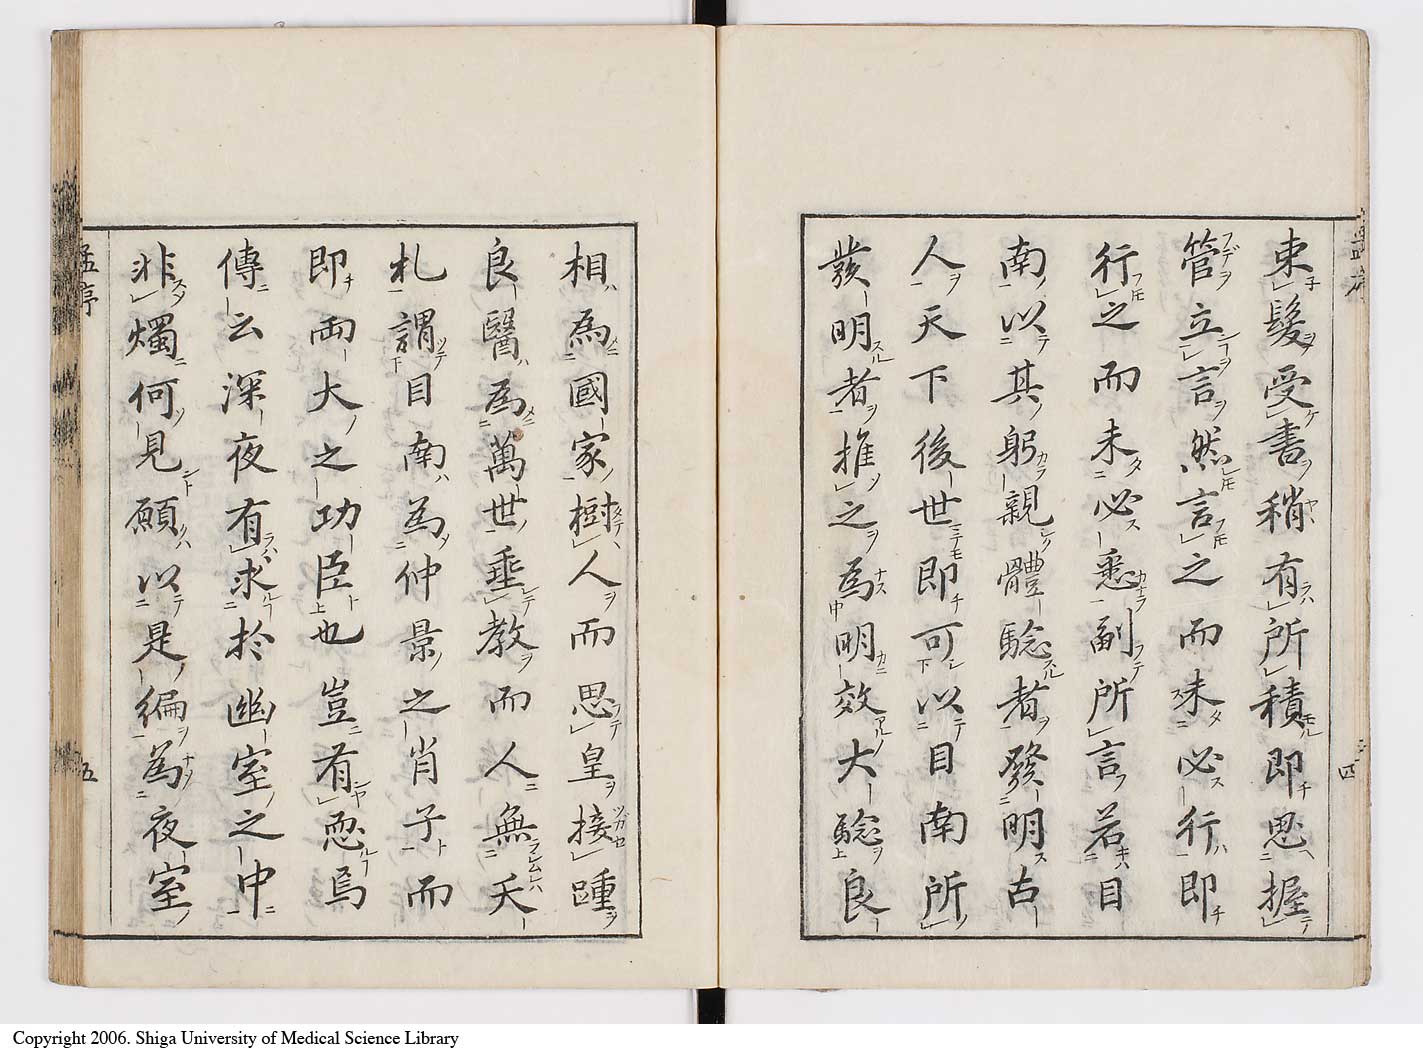 束髮受書稍有所積即思握
管立言然言之而未必行即
行之而未必悉副所言若目
南以其躬親體驗者發明古
人天下後世即可以目南所
發明者推之為明效大驗良
四
相為國家樹人而思皇接踵
良醫為萬世垂教而人無夭
札謂目南為仲景之肖子而
即兩大之功臣也豈有忍焉
傳云深夜有求於幽室之中
非燭何見願以是編為夜室
孟序
五
Copyright 2006. Shiga University of Medical Science Library